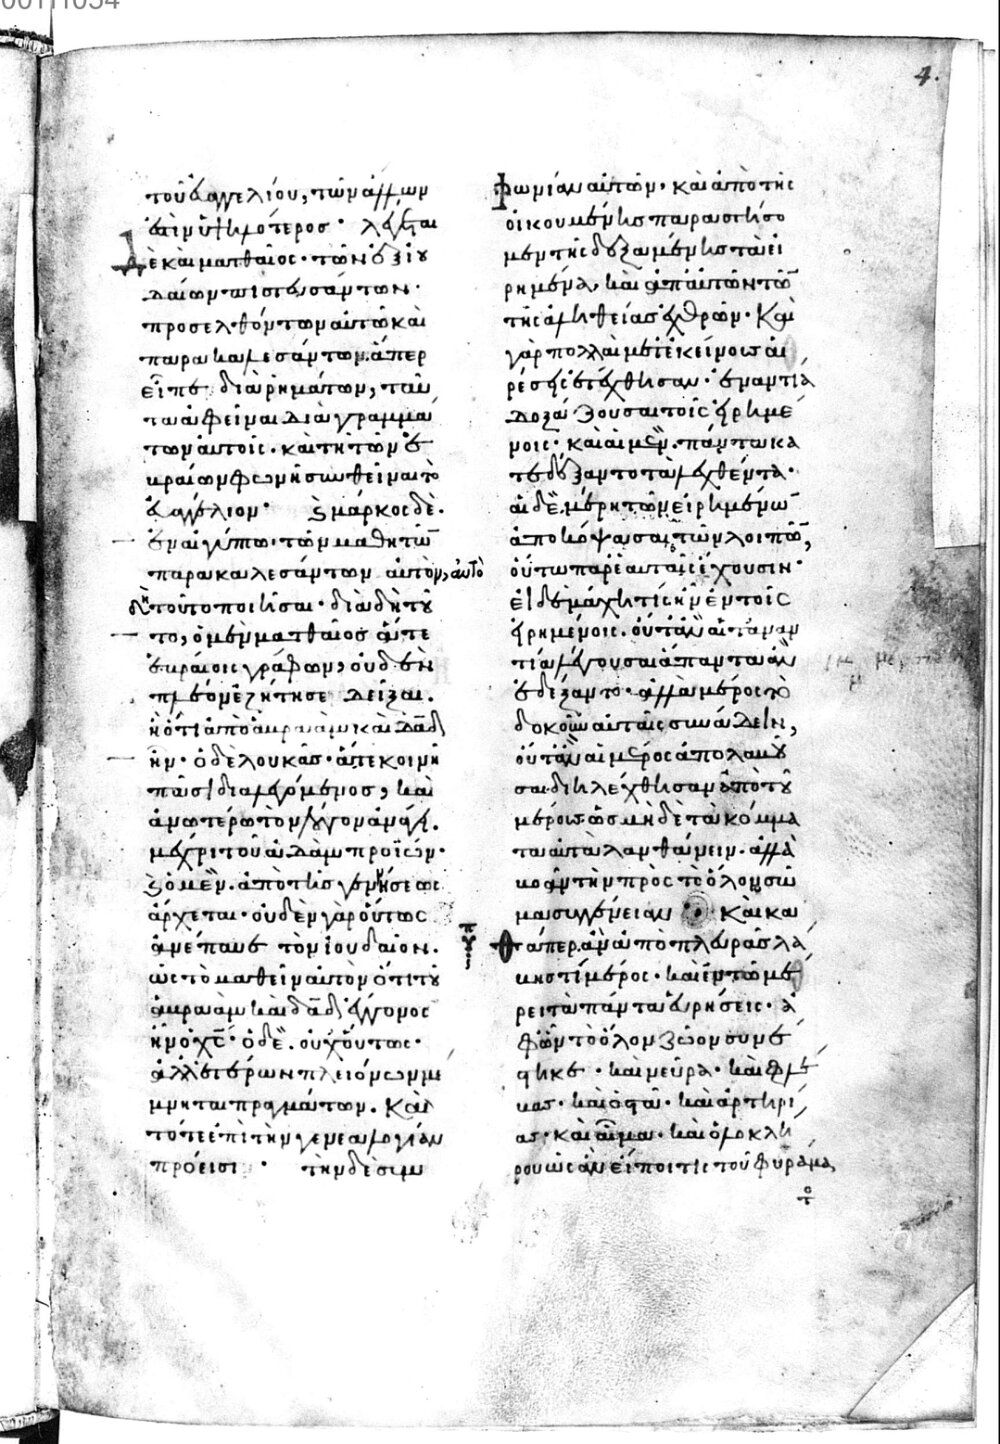 4.
τοῦ εὐαγγελίου, τῶν ἄλλων
ἐστὶν ὑψηλότερος· λέγεται
δὲ καὶ ματθαῖος· τῶν ἐξ ἰου
δαίων πιστευσάντων·
προσελθόντων αὐτῶ καὶ
παρακαλεσάντων. ἅπερ
εἶπε διὰ ῥημάτων, ταῦ
τα ἀφεῖναι διὰ γραμμά
των αὐτοῖς. καὶ τῆ τῶν ἑ
βραίων φωνῆ συνθεῖναι τὸ
εὐαγγέλιον· ϛ μάρκος δὲ.
ἐν αἰγύπτω· τῶν μαθητῶ̅
παρακαλεσάντων αὐτὸν, αὐτὸ
δὴ τοῦτο ποιῆσαι· διὰ δὴ τοῦ
το, ὁ μὲν ματθαῖος ἅτε
ἑβραίοις γράφων, οὐδὲν
πλέον ἐζήτησε δεῖξαι.
ἢ ὅτι ἀπὸ ἀβραὰμ καὶ δα̅δ
ἦν· ὁ δὲ λουκᾶς· ἅτε κοινῆ
πᾶσι διαλεγόμενος, καὶ
ἀνωτέρω τὸν λόγον ἀνάγει.
μέχρι τοῦ ἀδὰμ προϊών·
ϛ ὁ μὲν. ἀπὸ τῆς γεννήσεως
ἄρχεται· οὐδὲν γὰρ οὕτως
ἀνέπαυε τὸν ἰουδαῖον.
ὡς τὸ μαθεῖν αὐτὸν ὅτι τοῦ
ἀβραὰμ καὶ δα̅δ ἔγγονος
ἦν ὁ χ̅ς̅· ὁ δὲ. οὐχ οὕτως·
ἀλλ' ἑτέρων πλειόνων μέ
μνηται πραγμάτων. Καὶ
τότε ἐπὶ τὴν γενεαλογίαν
πρόεισι · τὴν δὲ συμ
φωνίαν αὐτῶν· καὶ ἀπὸ τῆς
οἰκουμένης παραστήσο
μεν τῆς δεξαμένης τὰ εἰ
ρημένα, καὶ ἀπ' αὐτῶν τῶ̅
τῆς ἀληθείας ἐχθρῶν· Καὶ
γὰρ πολλαὶ μετ' ἐκείνους αἱ
ρέσεις ἐτέχθησαν· ἐναντία
δοξάζουσαι τοῖς εἰρημέ
νοις· καὶ αἱ μὲν. πάντα κα
τεδέξαντο τὰ λεχθέντα·
αἱ δὲ, μέρη τῶν εἰρημένω̅
ἀποκόψασαι, τῶν λοιπῶ̅,
οὕτω παρ' ἑαυταῖς ἔχουσιν·
εἰ δὲ μάχη τις ἦν ἐν τοῖς
εἰρημένοις. οὔτ' ἂν αἱ τἀναν
τία λέγουσαι ἅπαντα ἂν
ἐδέξαντο· ἀλλὰ μέρος τὸ
δοκοῦν αὐταῖς συνάδειν,
οὔτ' ἂν αἱ μέρος ἀπολαβοῦ
σαι διηλέχθησαν ἀπὸ τοῦ
μέρους ὡς μηδὲ τὰ κόμμα
τα αὐτὰ λανθάνειν. ἀλλὰ
βοᾶν τὴν πρὸς τὸ ὅλον σῶ
μα συγγένειαν Καὶ κα
θάπερ. ἂν ἀπὸ πλευρᾶς λά
βης τί μέρος. καὶ ἐν τῶ μέ
ρει τὰ πάντα εὑρήσεις. ἀ
φ' ὧν τὸ ὅλον ζῶον συνέ
στηκε· καὶ νεῦρα· καὶ φλέ
βας· καὶ ὀστᾶ· καὶ ἀρτηρί
ας· καὶ αἷμα· καὶ ὁλοκλή
ρου ὡς ἂν εἴποι τις τοῦ φυράμα